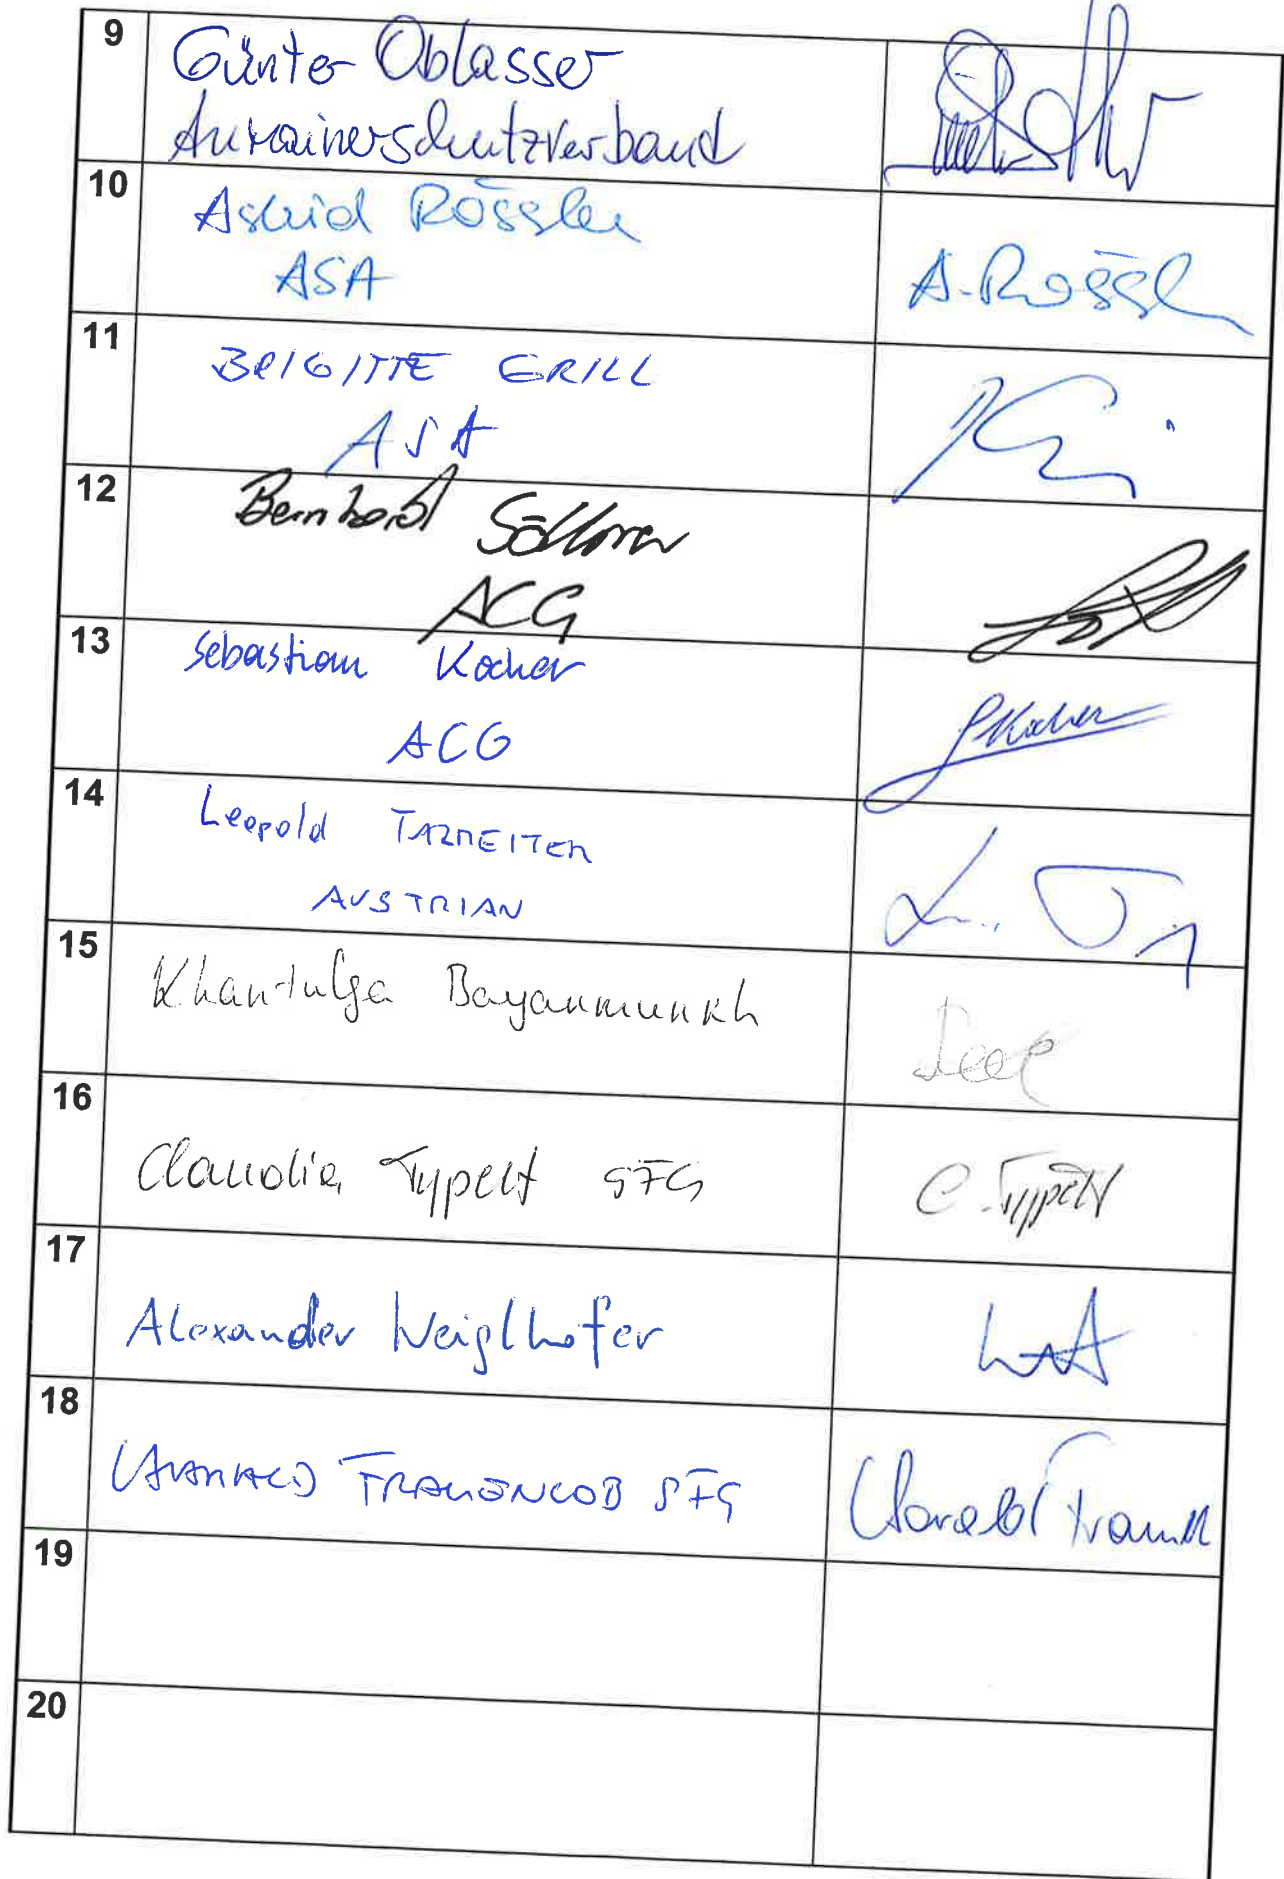 9
Günter Oblasser
Anrainerschutzverband
10
Astrid Rössler
ASA
A. Rössl
11
BRIGITTE GRILL
ASA
12
Bernhard Söllner
ACG
13
Sebastian Kocher
ACG
SKocher
14
Leopold TARMEITER
AUSTRIAN
15
Khantulga Bayanmunkh
16
Claudia Typelt SFG
C. Typelt
17
Alexander Weiglhofer
18
HARALD SFG
Harald
19
20